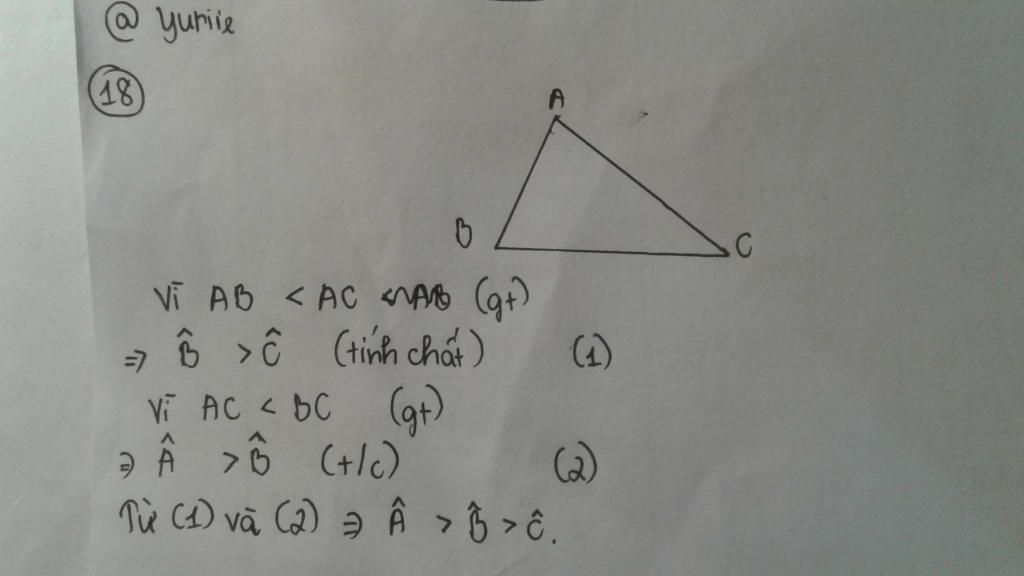 @ yuriie
18
A
B
C
Vì AB < AC (gt)
⇒ B̂ > Ĉ (tính chất) (1)
Vì AC < BC (gt)
⇒ Â > B̂ (t/c) (2)
Từ (1) và (2) ⇒ Â > B̂ > Ĉ.